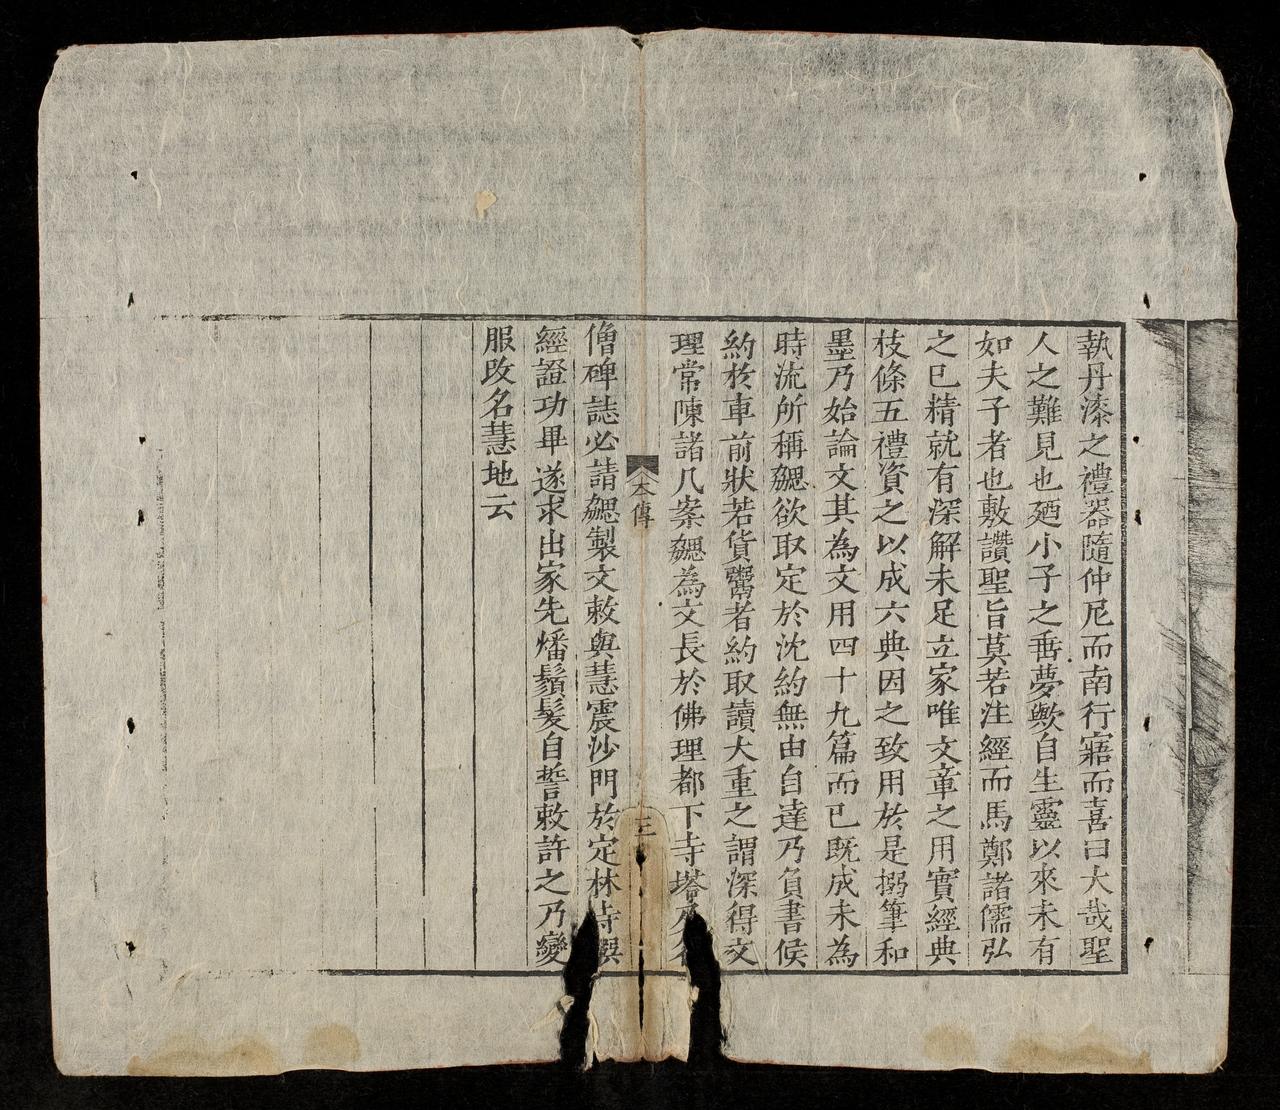 執丹漆之禮器隨仲尼而南行寤而喜曰大哉聖
人之難見也廼小子之垂夢歟自生靈以來未有
如夫子者也敷讚聖旨莫若注經而馬鄭諸儒弘
之已精就有深解未足立家唯文章之用實經典
枝條五禮資之以成六典因之致用於是搦筆和
墨乃始論文其為文用四十九篇而已既成未為
時流所稱勰欲取定於沈約無由自達乃負書候
約於車前狀若貨鬻者約取讀大重之謂深得文
理常陳諸几案勰為文長於佛理都下寺塔及名
本傳
三
僧碑誌必請勰製文敕與慧震沙門於定林寺撰
經證功畢遂求出家先燔鬚髮自誓敕許之乃變
服改名慧地云